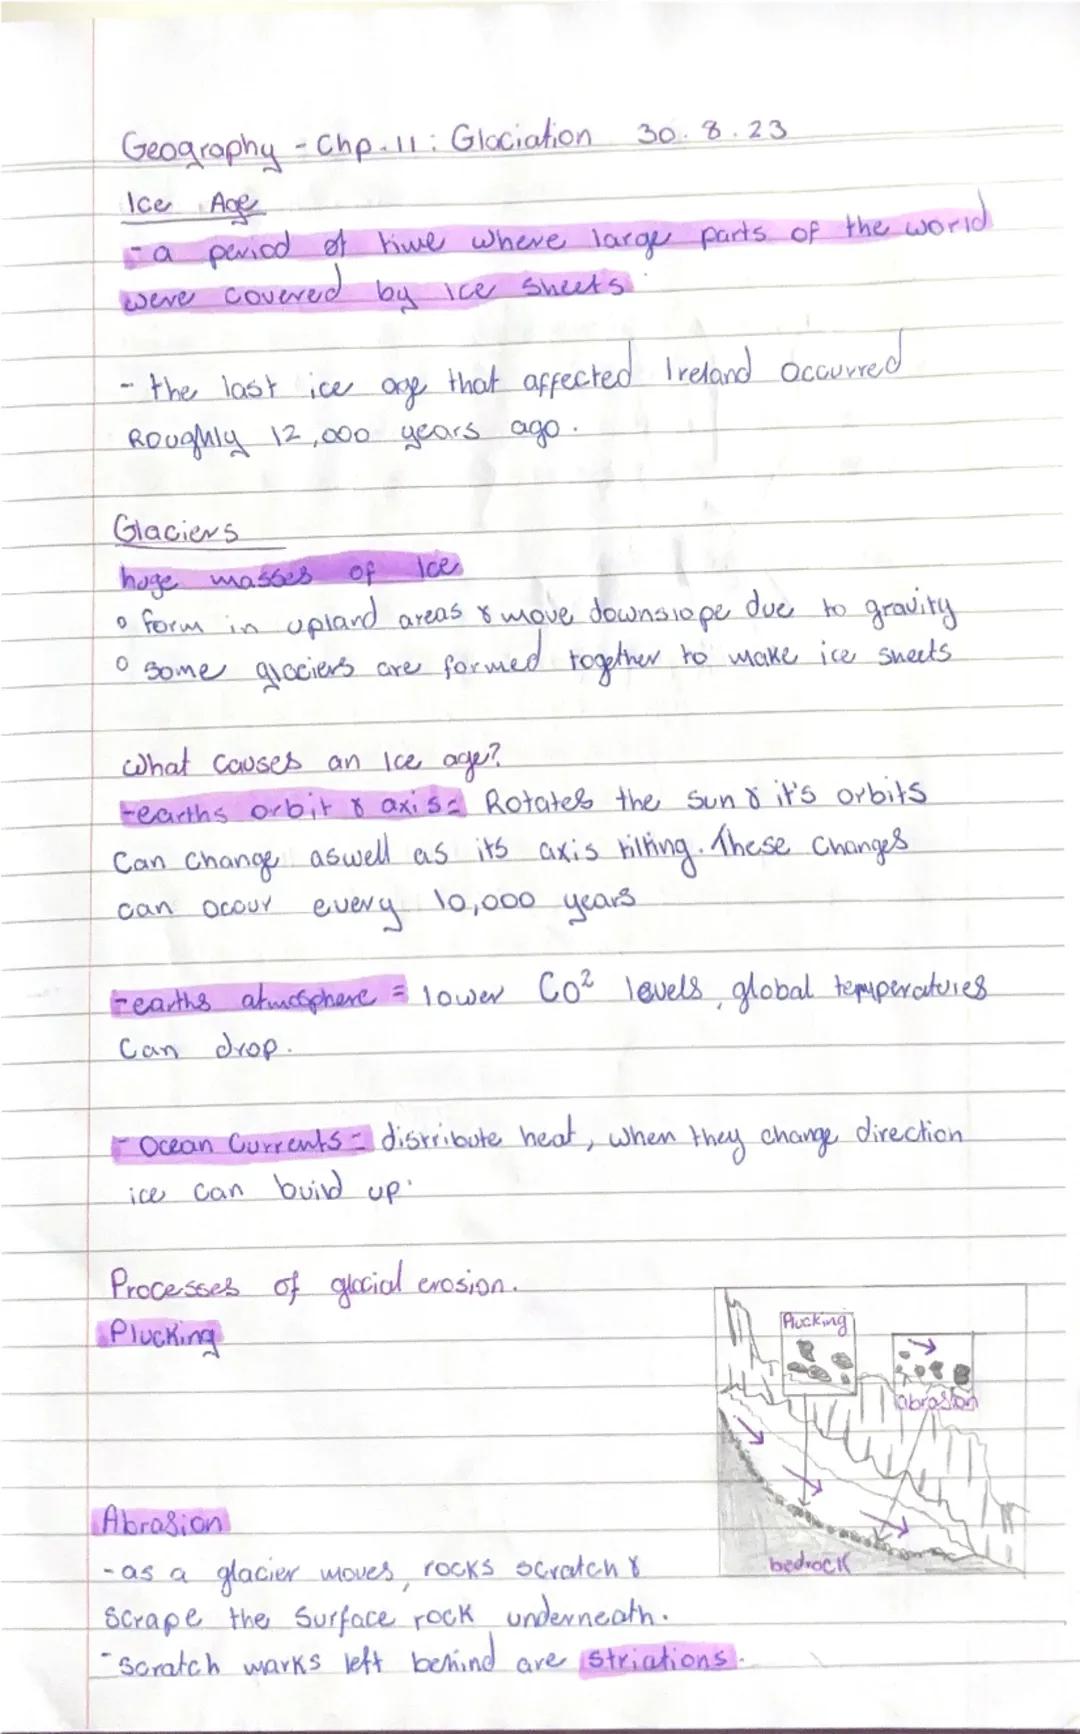 Geography - Chp.11: Glaciation 30.8.23
Ice Age
- a period of time where large parts of the world
were covered by ice sheets.
- the last ice age that affected Ireland occurred
Roughly 12,000 years ago.
Glaciers
huge masses of Ice
° form in upland areas & move downslope due to gravity
° some glaciers are formed together to make ice sheets
What causes an Ice age?
- earths orbit & axis = Rotates the sun & it's orbits
Can Change aswell as its axis tilting. These Changes
can occur every 10,000 years
- earths atmosphere = lower CO² levels, global temperatures
Can drop.
- Ocean Currents = distribute heat, when they change direction
ice can build up.
Processes of glacial erosion.
Plucking
Plucking
abrasion
bedrock
Abrasion
- as a glacier moves, rocks scratch &
Scrape the Surface rock underneath.
- Scratch marks left behind are striations.